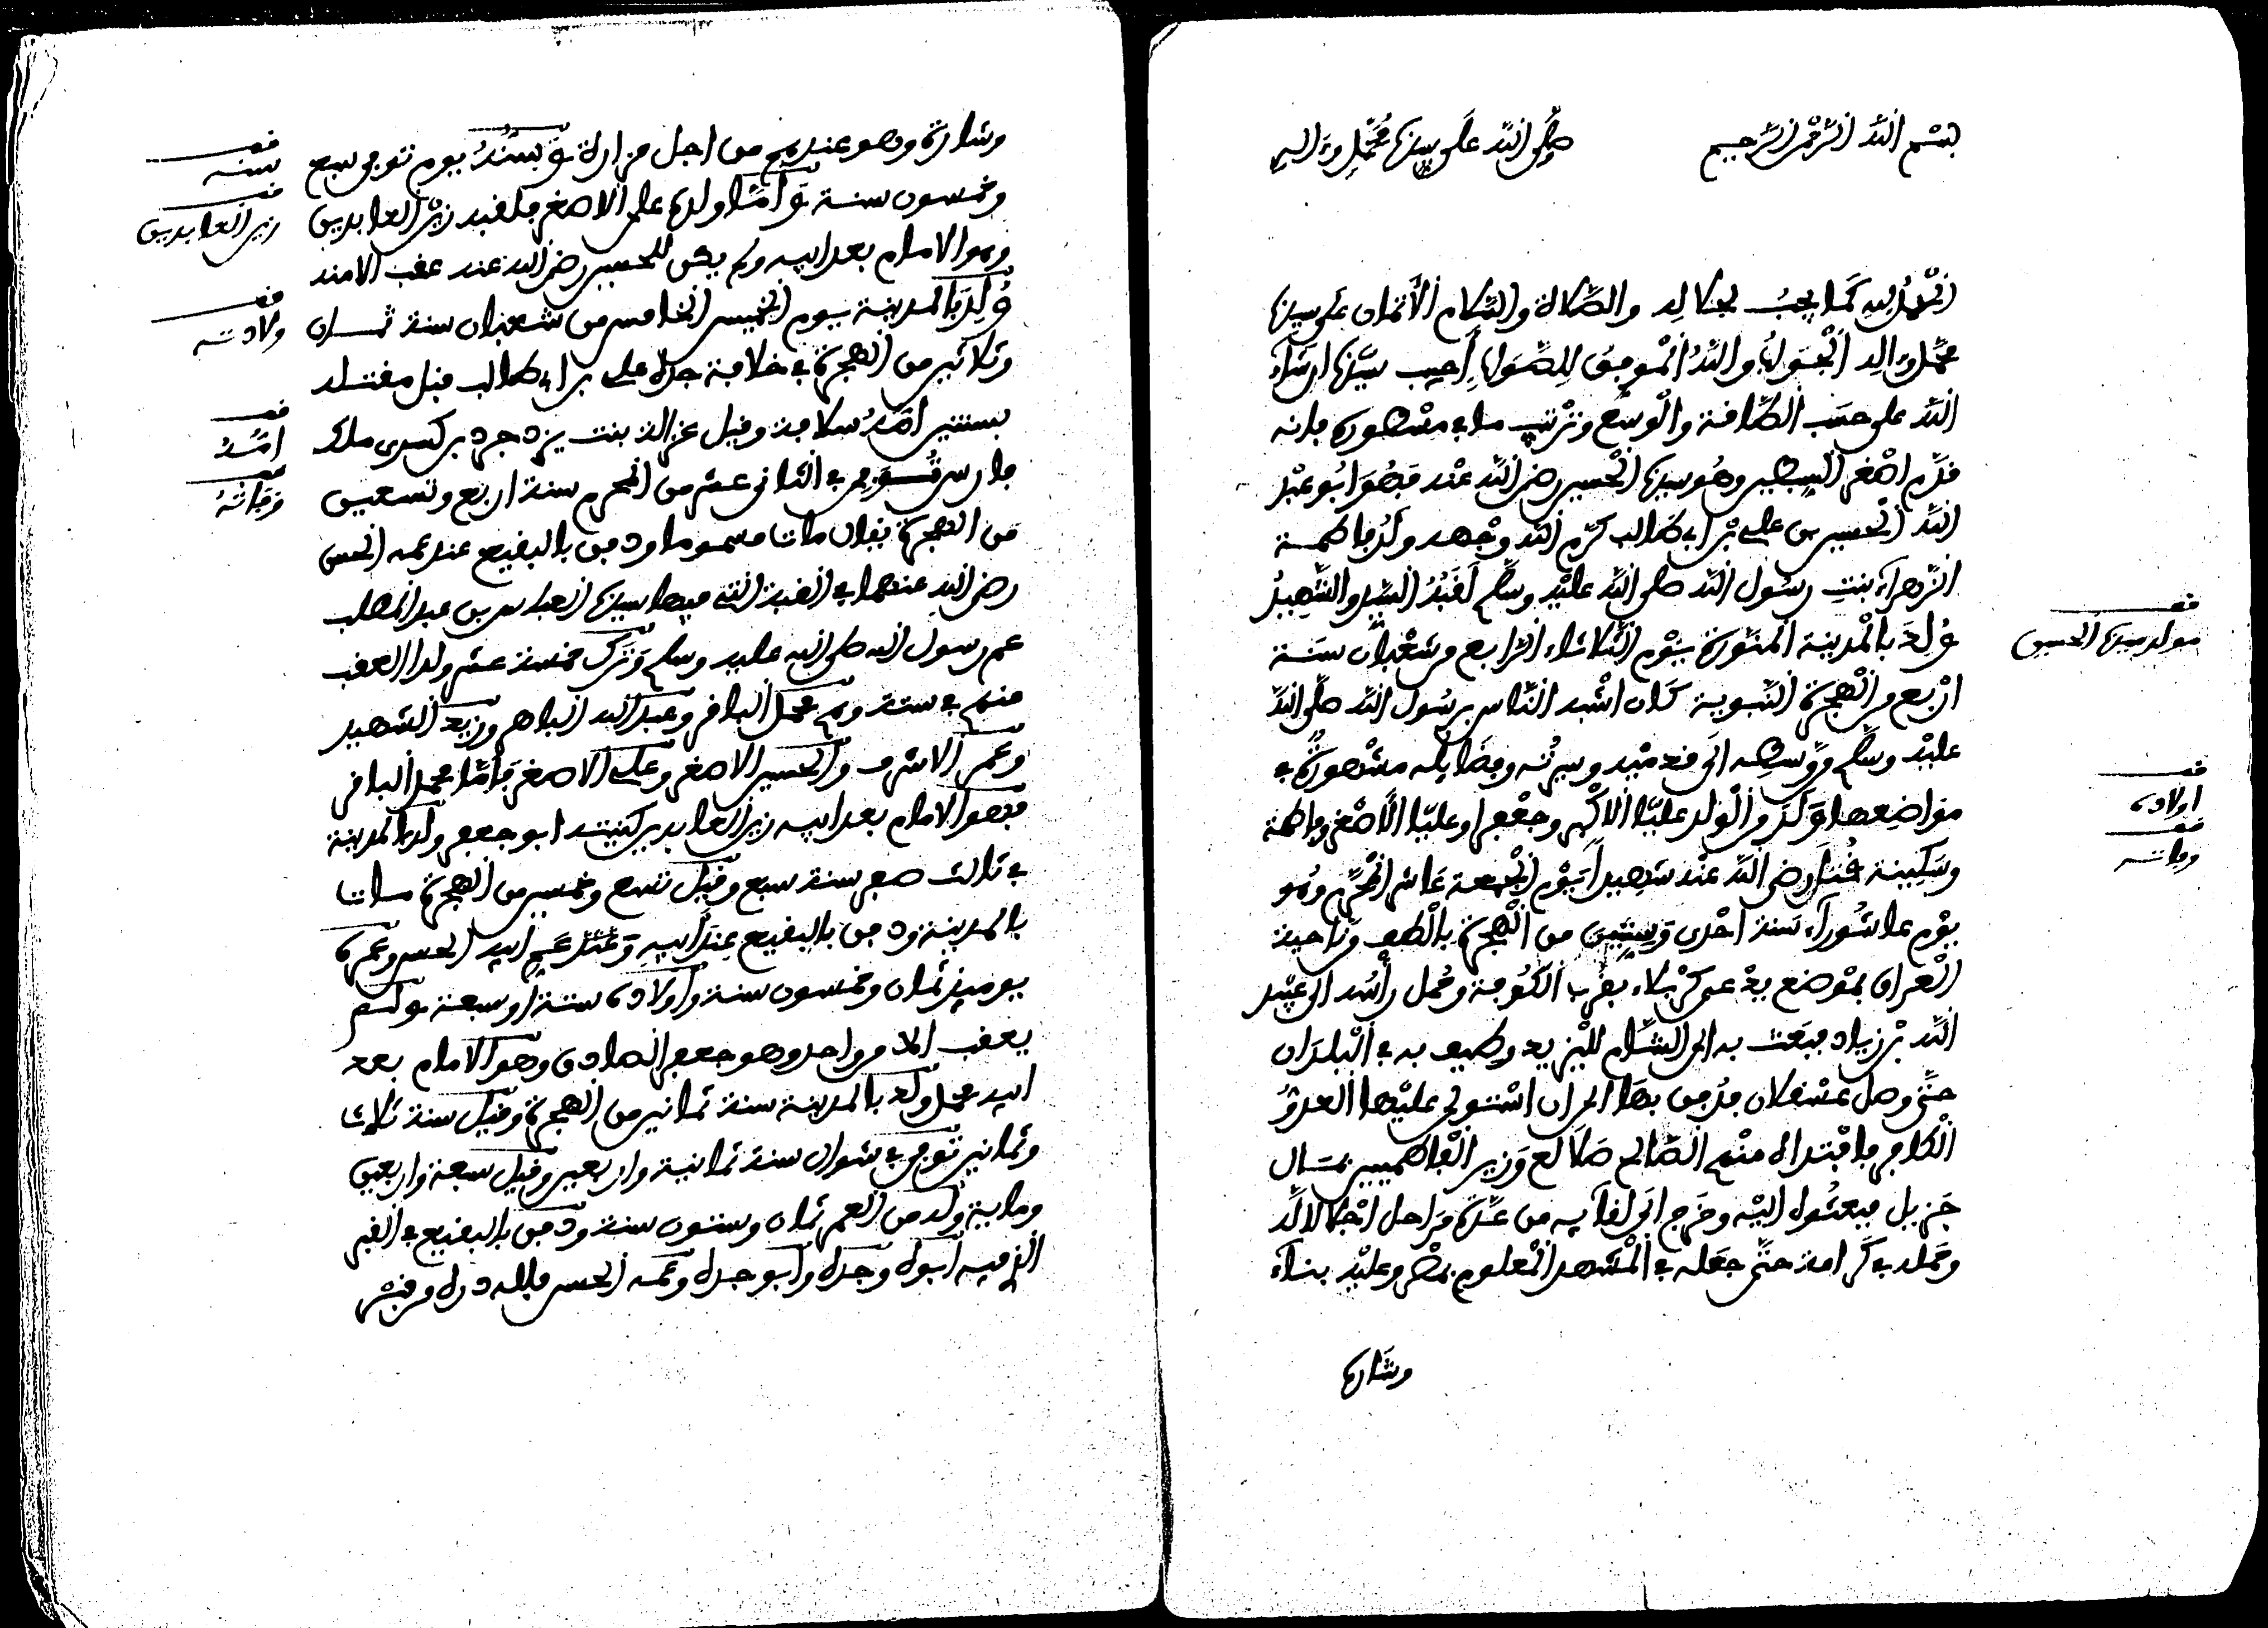 بسم الله الرحمن الرحيم صلى الله على سيدنا محمد وءاله
الحمد لله كما يجب لجلاله والصلاة والسلام الأتمان على سيدنا
محمد وءاله والله الموفق للصواب أجيب سيدنا ارشاده
الله على حسب الطاقة والوسع وترتيب ما في مسطوره بانه
قدم اصغر السبطين وهو سيدنا الحسين رضي الله عنه فهو ابو عبد
الله الحسين بن علي بن ابي طالب كرم الله وجهه ولد فاطمة
الزهراء بنت رسول الله صلى الله عليه وسلم لقبه السيد والشهيد
ولد بالمدينة المنورة يوم الثلاثاء الرابع من شعبان سنة
اربع من الهجرة النبوية كان اشبه الناس برسول الله صلى الله
عليه وسلم من وسطه الى قدميه وسيرته وفضايله مشهورة في
مواضعها وله من الولد عليا الاكبر وجعفرا وعليا الاصغر وفاطمة
وسكينة قتل رضي الله عنه شهيدا يوم الجمعة عاشر المحرم وهو
يوم عاشوراء سنة احدى وستين من الهجرة بالطف من ناحية
العراق بموضع يدعى كربلاء بقرب الكوفة وحمل رأسه الى عبيد
الله بن زياد فبعث به الى الشام لليزيد وطيف به في البلدان
حتى وصل عسقلان فدفن بها الى ان استولى عليها العدو
الكافر فافتداه منهم الصالح طلائع وزير الفاطميين بمال
جزيل فبعثوه اليه وخرج الى لقايه من عدة مراحل اجلالا له
وحمله في كرامة حتى جعله في المشهد المعلوم بمصر وعليه بناء
وشارة
مولد سيدنا الحسين
اولاده
وفاته
وشارة وهو عندهم من اجل مزارة وسنه يوم توفي سبع
وخمسون سنة واما ولده علي الاصغر فلقبه زين العابدين
وهو الامام بعد ابيه ولم يكن للحسين رضي الله عنه عقب الا منه
ولد بالمدينة يوم الخميس الخامس من شعبان سنة ثمان
وثلاثين من الهجرة في خلافة جده علي بن ابي طالب قبل مقتله
بسنتين امه سلافة وقيل غزالة بنت يزدجرد بن كسرى ملك
فارس توفي في الثاني عشر من المحرم سنة اربع وتسعين
من الهجرة يقال مات مسموما ودفن بالبقيع عند عمه الحسن
رضي الله عنهما في القبة التي فيها سيدنا العباس بن عبد المطلب
عم رسول الله صلى الله عليه وسلم وترك خمسة عشر ولدا العقب
منهم في ستة وهم محمد الباقر وعبد الله الباهر وزيد الشهيد
وعمر الاشرف والحسين الاصغر وعلي الاصغر فأما محمد الباقر
فهو الامام بعد ابيه زين العابدين كنيته ابو جعفر ولد بالمدينة
في ثالث صفر سنة سبع وقيل تسع وخمسين من الهجرة مات
بالمدينة ودفن بالبقيع عند ابيه وعند عم ابيه الحسن وعمره
يوميذ ثمان وخمسون سنة واولاده ستة او سبعة ولم
يعقب الا من واحد وهو جعفر الصادق وهو الامام بعد
ابيه محمد ولد بالمدينة سنة ثمانين من الهجرة وقيل سنة ثلاث
وثمانين توفي في شوال سنة ثمانية واربعين وقيل سبعة واربعين
وماية وله من العمر ثمان وستون سنة ودفن بالبقيع في القبر
الذي فيه ابوه وجده وابو جده وعمه الحسن فلله دره من قبر
سنه
زين العابدين
ولادته
امه
وفاته